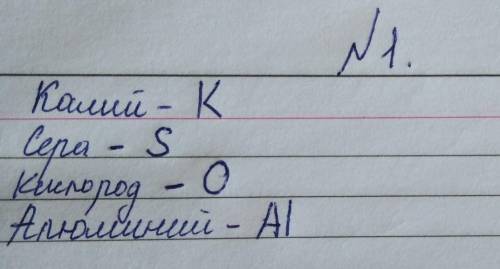 №1.
Калий - K
Сера - S
Кислород - O
Алюминий - Al